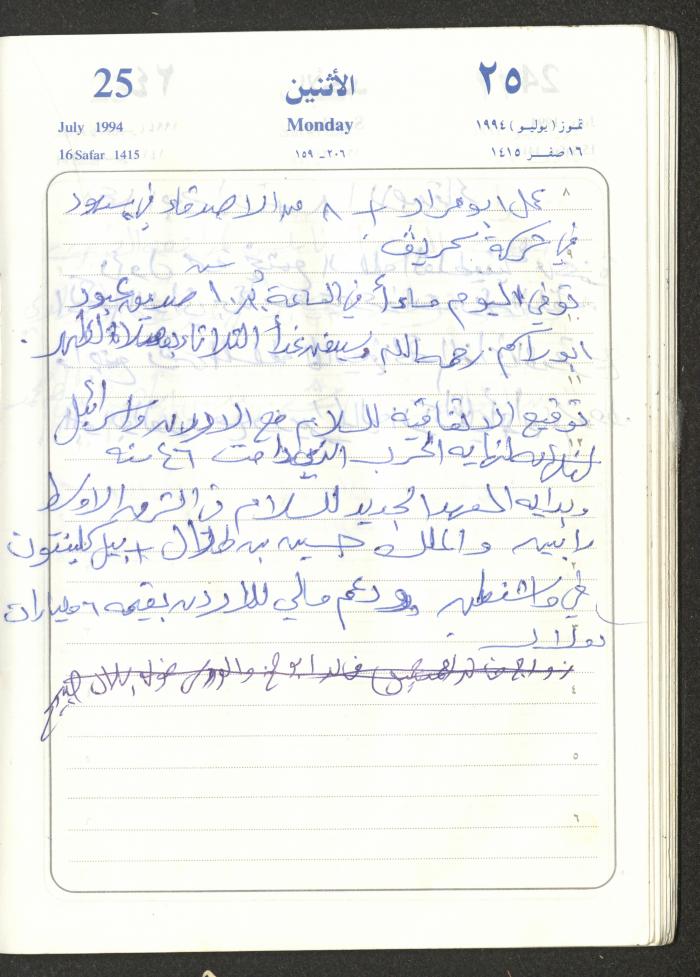 25 الأثنين ٢٥
July 1994 Monday تمـوز ( يوليـو ) ١٩٩٤
16 Safar 1415 ٢٠٦-١٥٩ ١٦ صفـــر ١٤١٥
٨
عمل ابو مراد + ٨ من الاصدقاء في
في شركة
توفي اليوم مساءاً في الساعة ١٠ صديق
ابو راكم رحمه الله وسيدفن غداً الثلاثاء بصلاة الظهر .
١١
توقيع اتفاقية السلام مع الاردن واسرائيل
١٢
الحرب التي دامت ٤٦ سنة
وبداية العهد الجديد للسلام في الشرق الاوسط
رابين والملك حسين بن طلال + بيل كلينتون
٢
في واشنطن ودعم مالي للاردن بقيمة ٦ مليارات
٣
دولار .
زواج خالد
٤
٥
٦